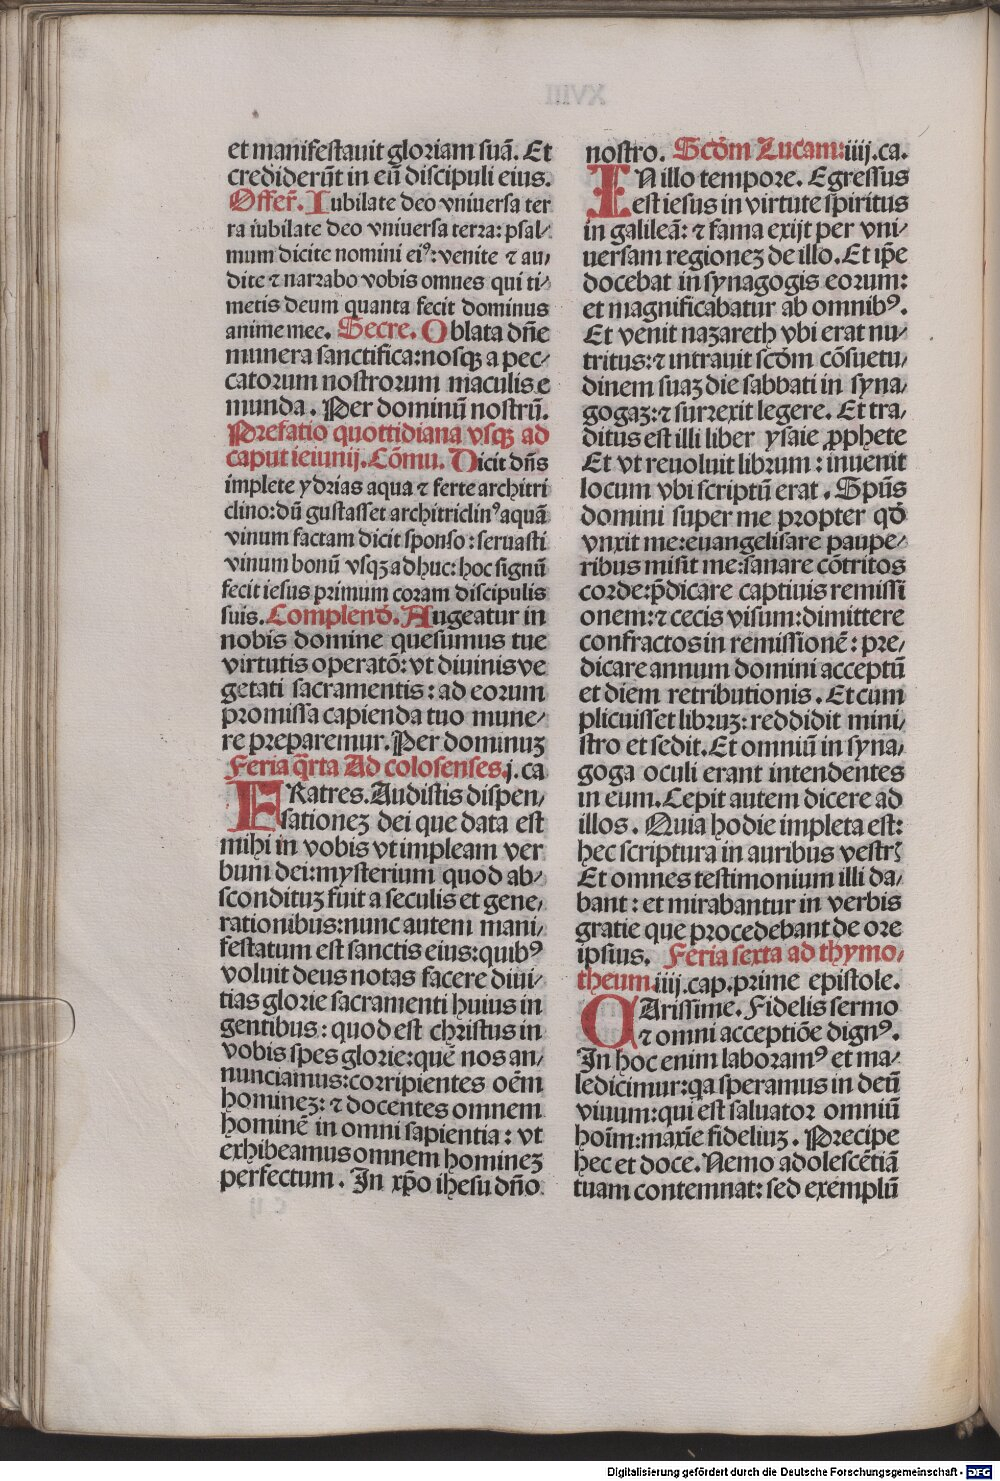 et manifestauit gloriam suã. Et
crediderũt in eũ discipuli eius.
Offer̃. Iubilate deo vniuersa ter
ra iubilate deo vniuersa terra: psal⸗
mum dicite nomini eiꝰ: venite ⁊ au⸗
dite ⁊ narrabo vobis omnes qui ti⸗
metis deum quanta fecit dominus
anime mee. Secre. Oblata dñe
munera sanctifica: nosqꝫ a pec⸗
catorum nostrorum maculis e
munda. Per dominũ nostrũ.
Prefatio quottidiana vsqꝫ ad
caput ieiunij. Cõmu. Dicit dñs
implete ydrias aqua ⁊ ferte architri
clino: dũ gustasset architriclinꝰ aquã
vinum factam dicit sponso: seruasti
vinum bonũ vsqꝫ adhuc: hoc signũ
fecit iesus primum coram discipulis
suis. Complend̃. Augeatur in
nobis domine quesumus tue
virtutis operatõ: vt diuinis ve
getati sacramentis: ad eorum
promissa capienda tuo mune⸗
re preparemur. Per dominuꝫ
Feria q̃rta Ad colosenses. j. ca
FRatres. Audistis dispen⸗
sationeꝫ dei que data est
mihi in vobis vt impleam ver
bum dei: mysterium quod ab⸗
scondituꝫ fuit a seculis et gene⸗
rationibus: nunc autem mani⸗
festatum est sanctis eius: quibꝰ
voluit deus notas facere diui⸗
tias glorie sacramenti huius in
gentibus: quod est christus in
vobis spes glorie: quẽ nos an⸗
nunciamus: corripientes oẽm
homineꝫ: ⁊ docentes omnem
hominẽ in omni sapientia: vt
exhibeamus omnem homineꝫ
perfectum. In xp̃o ihesu dño
nostro. Scd̃m Lucam: iiij. ca.
IN illo tempore. Egressus
est iesus in virtute spiritus
in galileã: ⁊ fama exijt per vni⸗
uersam regioneꝫ de illo. Et ip̃e
docebat in synagogis eorum:
et magnificabatur ab omnibꝰ.
Et venit nazareth vbi erat nu⸗
tritus: ⁊ intrauit scd̃m cõsuetu⸗
dinem suaꝫ die sabbati in syna⸗
gogaꝫ: ⁊ surrexit legere. Et tra⸗
ditus est illi liber ysaie ꝓphete
Et vt reuoluit librum: inuenit
locum vbi scriptũ erat. Spũs
domini super me propter qd̃
vnxit me: euangelisare paupe⸗
ribus misit me: sanare cõtritos
corde: p̃dicare captiuis remissi
onem: ⁊ cecis visum: dimittere
confractos in remissionẽ: pre⸗
dicare annum domini acceptũ
et diem retributionis. Et cum
plicuisset libruꝫ: reddidit mini⸗
stro et sedit. Et omniũ in syna⸗
goga oculi erant intendentes
in eum. Cepit autem dicere ad
illos. Quia hodie impleta est:
hec scriptura in auribus vestrꝭ
Et omnes testimonium illi da⸗
bant: et mirabantur in verbis
gratie que procedebant de ore
ipsius. Feria sexta ad thymo⸗
theum. iiij. cap. prime epistole.
CArissime. Fidelis sermo
⁊ omni acceptiõe dignꝰ.
In hoc enim laboramꝰ et ma⸗
ledicimur: qa speramus in deũ
viuum: qui est saluator omniũ
hoĩm: maxĩe fideliuꝫ. Precipe
hec et doce. Nemo adolescẽtiã
tuam contemnat: sed exemplũ
Digitalisierung gefördert durch die Deutsche Forschungsgemeinschaft - DFG